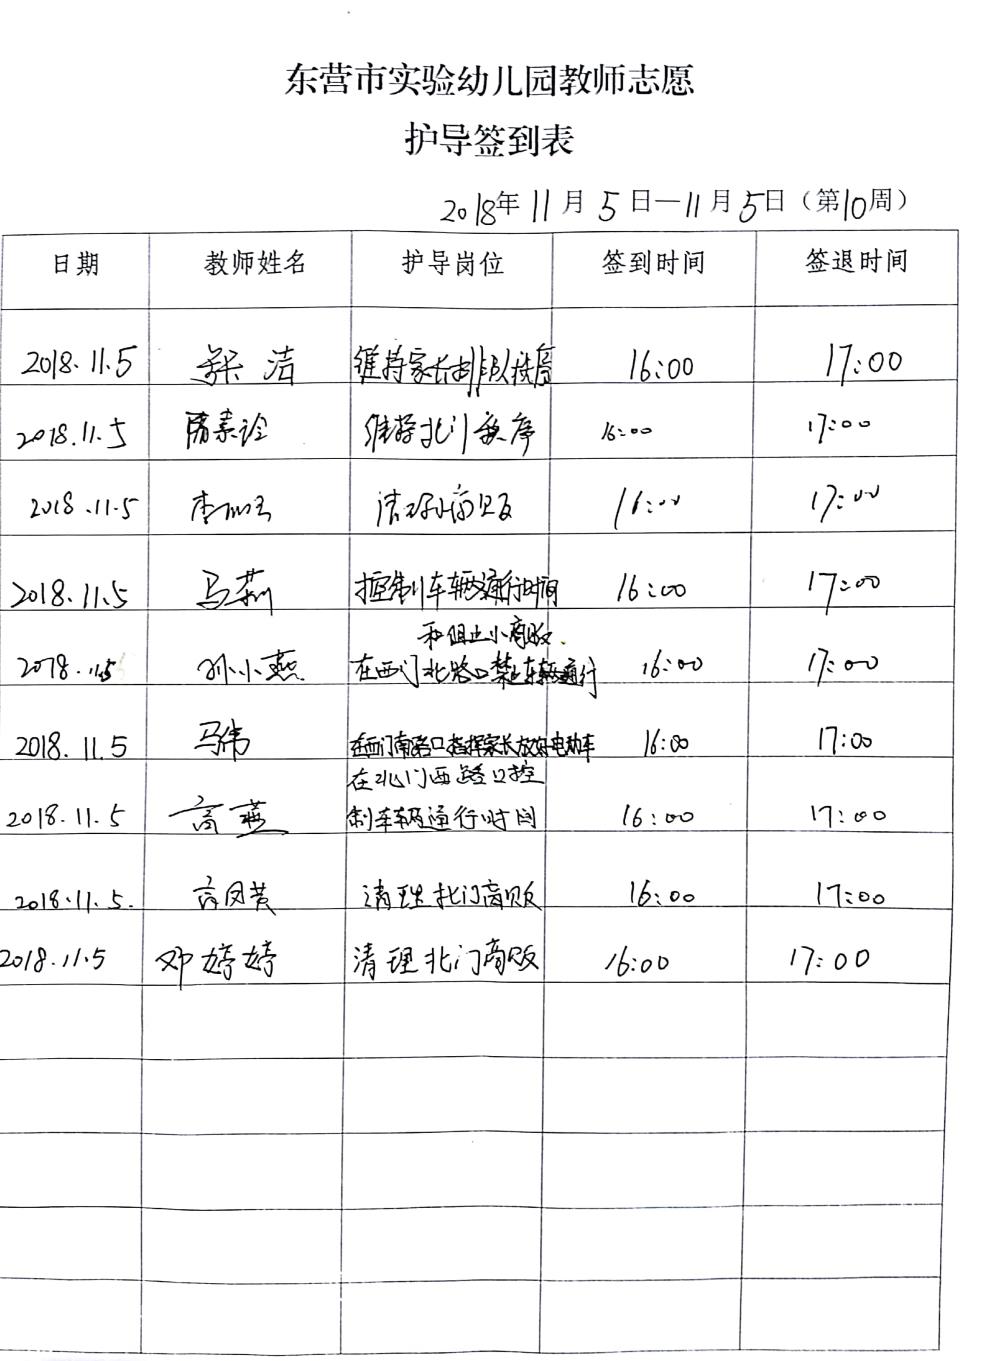 东营市实验幼儿园教师志愿
护导签到表
2018年11月5日—11月5日（第10周）
日期 教师姓名 护导岗位 签到时间 签退时间
2018.11.5 洁 维持家长排队秩序 16:00 17:00
2018.11.5 维持北门秩序 16:00 17:00
2018.11.5 李 清理小商贩 16:00 17:00
2018.11.5 马莉 控制车辆通行时间 16:00 17:00
和阻止小商贩.
2018.11.5 孙小燕 在西门北路口禁止车辆通行 16:00 17:00
2018.11.5 马伟 在西门南路口指挥家长放好电动车 16:00 17:00
在北门西路口控
2018.11.5 高燕 制车辆通行时间 16:00 17:00
2018.11.5. 清理北门商贩 16:00 17:00
2018.11.5 邓婷婷 清理北门商贩 16:00 17:00